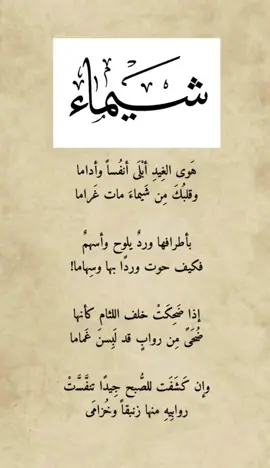 شَيْمَاء
هَوى الغِيدِ أَبْلَى أنفُساً وأداما
وقلبُكَ مِن شَيماءَ مات غَراما
بأطرافها وردٌ يلوح وأسهمٌ
فكيف حوت وردًا بها وسِهاما!
إذا ضَحِكَتْ خلف اللثام كأنها
ضُحَىً مِن روابٍ قد لَبِسنَ غَماما
وإن كَشَفَت للصُّبح جِيدًا تنفَّسَتْ
روابِيهِ منها زنبقاً وخُزامَى